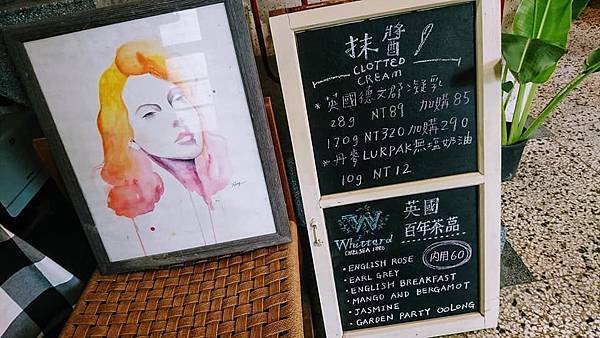 抹醬
CLOTTED
CREAM
*英國德文郡凝乳
28g NT89 加購85
170g NT320 加購290
*丹麥LURPAK無塩奶油
10g NT12
W
Whittard
CHELSEA 1886
英國
百年茶品
內用60
• ENGLISH ROSE
• EARL GREY
• ENGLISH BREAKFAST
• MANGO AND BERGAMOT
• JASMINE
• GARDEN PARTY OOLONG